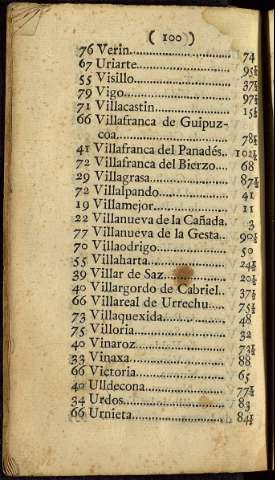 ( 100 )
76 Verin........................ 74
67 Uriarte...................... 95½
55 Visillo...................... 37½
79 Vigo........................ 97½
71 Villacastin.................. 15½
66 Villafranca de Guipuz-
coa........................ 78½
41 Villafranca del Panadés.. 102½
72 Villafranca del Bierzo.... 68
29 Villagrasa.................. 87½
72 Villalpando................ 41
19 Villamejor.................. 11
22 Villanueva de la Cañada. 3
77 Villanueva de la Gesta.. 90½
70 Villaodrigo................ 50
55 Villaharta.................. 24½
39 Villar de Saz.............. 20½
40 Villargordo de Cabriel.. 37½
66 Villareal de Urrechu.... 75½
73 Villaquexida.............. 48
75 Villoria.................... 32
40 Vinaroz.................... 73½
33 Vinaxa...................... 88
66 Victoria.................... 65
40 Ulldecona.................. 77½
34 Urdos........................ 83
66 Urnieta...................... 84½